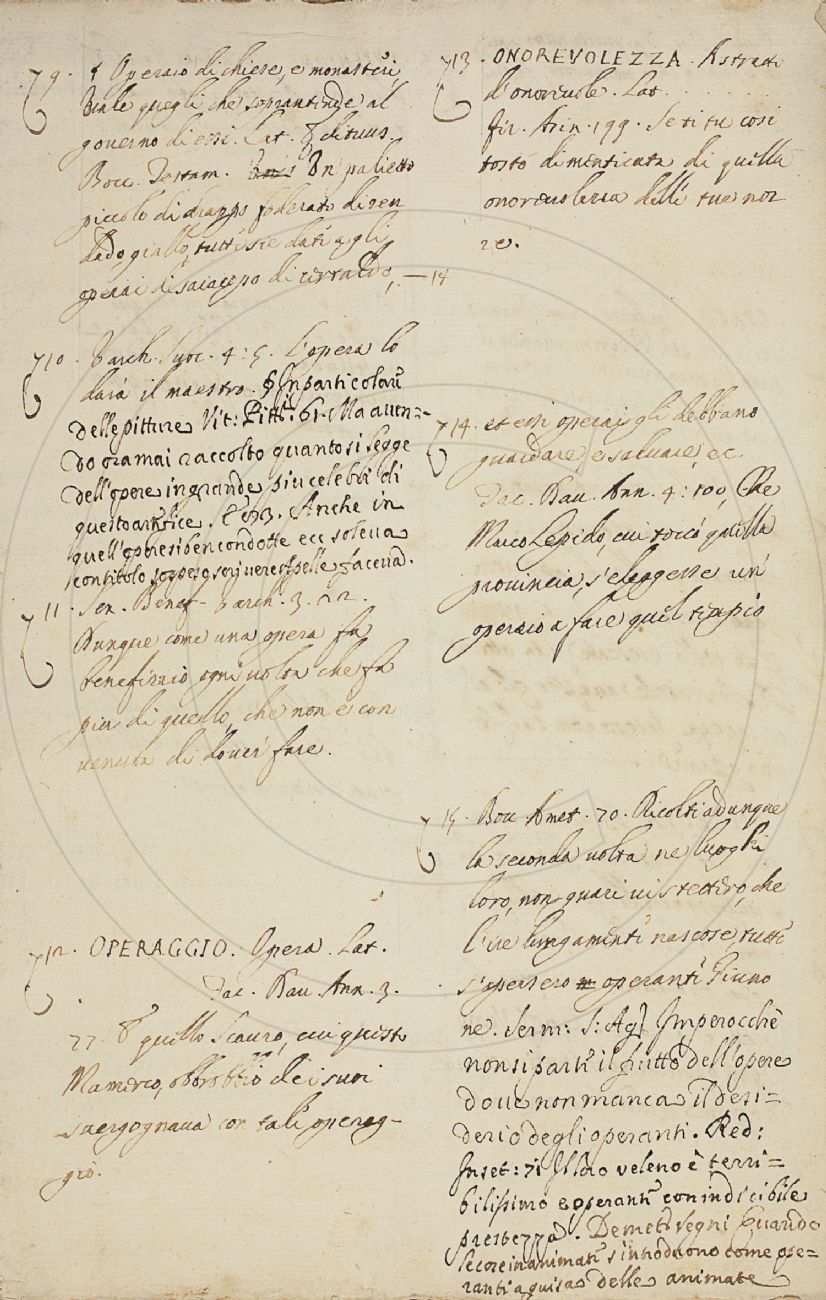 79. § Operaio di chiese, e monasteri,
vale quegli che soprantende al
governo di essi. Lat. Ædituus.
Bocc. Testam. Un palietto
piccolo di drappo foderato di zen
dado giallo, tutti sie dati agli
operai di Sa Iacopo di Certaldo, — 14
710. Varch. Suoc. 4: 5. L'opera lo
darà il maestro. § In particolare
delle pitture Vit: Pitt: 61. Ma aven=
do oramai raccolto quanto si legge
dell'opere in grande piu celebri di
questo artefice. E 93. Anche in
quell'opere si ben condotte ecc soleva
con titolo sospeso scrivere Apelle faceva.
711. Sen. Benef. Varch. 3. 22.
Dunque come una opera fa
benefizio ogni volta che fa
piu di quello, che non è con
venuta di dover fare.
712. OPERAGGIO. Opera. Lat.
Tac. Dav. Ann. 3.
77. E quello Scauro, cui questo
Mamerco, obbrobbio de i suoi
svergognava con tali operag-
gio.
713. ONOREVOLEZZA. Astratto
d'onorevole. Lat. . . . . . . .
Fir. Asin. 199. Se ti tu cosi
tosto dimenticata di quella
onorevolezza delle tue noz
ze.
714. et essi operai gli debbano
guardare, e salvare, ec.
Tac. Dav. Ann. 4: 100, Che
Marco Lepido, cui toccò quella
provincia, s'eleggesse un
operaio a fare quel tempio
715. Bocc. Amet. 70. Ricolti adunque
la seconda volta ne luoghi
loro, non guari vi stettero, che
l'ire lungamente nascose, tutte
s'apersero operante Giuno
ne. Serm: S: Ag: Imperocchè
non si parte il frutto dell'opere
dove non manca il desi=
derio degli operanti. Red:
Inset: 71 Il loro veleno è terri=
bilissimo e operante con indicibile
prestezza. Demet: Segni Quando
le cose inanimate s'introdcono come ope=
ranti a guisa delle animate